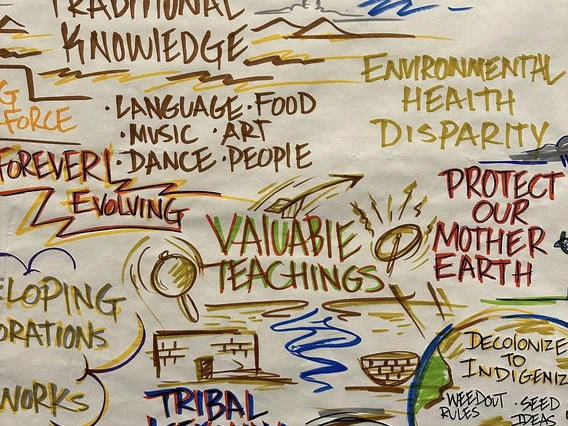 TRADITIONAL
KNOWLEDGE
ENVIRONMENTAL
HEALTH
DISPARITY
G
FORCE
• LANGUAGE • FOOD
• MUSIC • ART
• DANCE • PEOPLE
FOREVER!
EVOLVING
VALUABLE
TEACHINGS
PROTECT
OUR
MOTHER
EARTH
ELOPING
ORATIONS
WORKS
TRIBAL
DECOLONIZE
TO
INDIGENIZ
WEEDOUT
RULES
• SEED
IDEAS